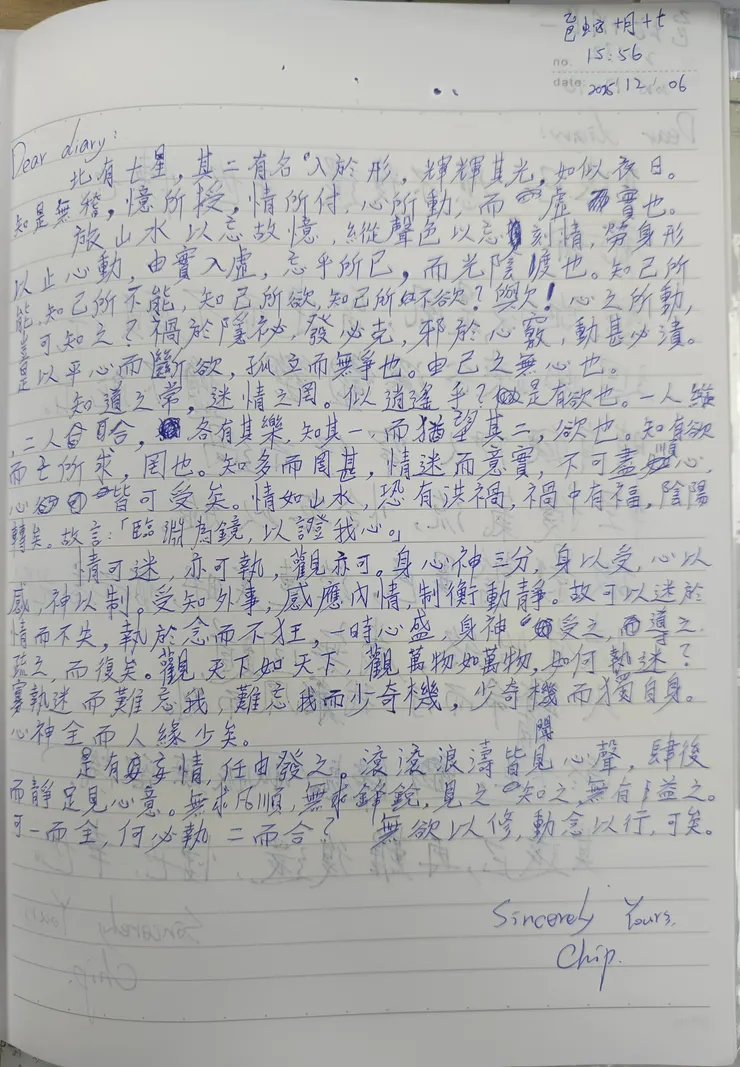 乙巳蛇十月十七
no. 15:56
date: 2025 12 06
Dear diary:
北有七星，其二有名入於形，輝輝其光，如似夜日。
知是無稽，憶所授，情所付，心所動，而虛實也。
放山水以忘故憶，縱聲色以忘刻情，勞身形
以止心動，由實入虛，忘乎所已，而光陰渡也。知己所
能，知己所不能，知己所欲，知己所不欲？與欠！心之所動，
可知之？禍於隱祕，發必克，邪於心竅，動甚必潰。
是以平心而斷欲，孤立而無爭也。由己之無心也。
知道之常，迷情之罔。似逍遙乎？是有欲也。一人
，二人合，各有其樂，知其一，而猶望其二，欲也。知有欲
而亡所求，罔也。知多而罔甚，情迷而意實，不可盡順心，
心皆可受矣。情如山水，恐有洪禍，禍中有福，陰陽
轉矣。故言：「臨淵為鏡，以證我心。」
情可迷，亦可執，觀亦可。身心神三分，身以受，心以
感，神以制。受知外事，感應內情，制衡動靜。故可以迷於
情而不失，執於念而不狂，一時心盛，身神受之，而導之
疏之，而復矣。觀天下如天下，觀萬物如萬物，如何執迷？
寡執迷而難忘我，難忘我而少奇機，少奇機而獨自身。
心神全而人緣少矣。
是有妄情，任由發之。滾滾浪濤皆見聞心聲，肆後
而靜足見心意。無求風順，無求鋒銳，見之知之，無有益之。
可一而全，何必執二而合？ 無欲以修，動念以行，可矣。
Sincerely Yours,
Chip.